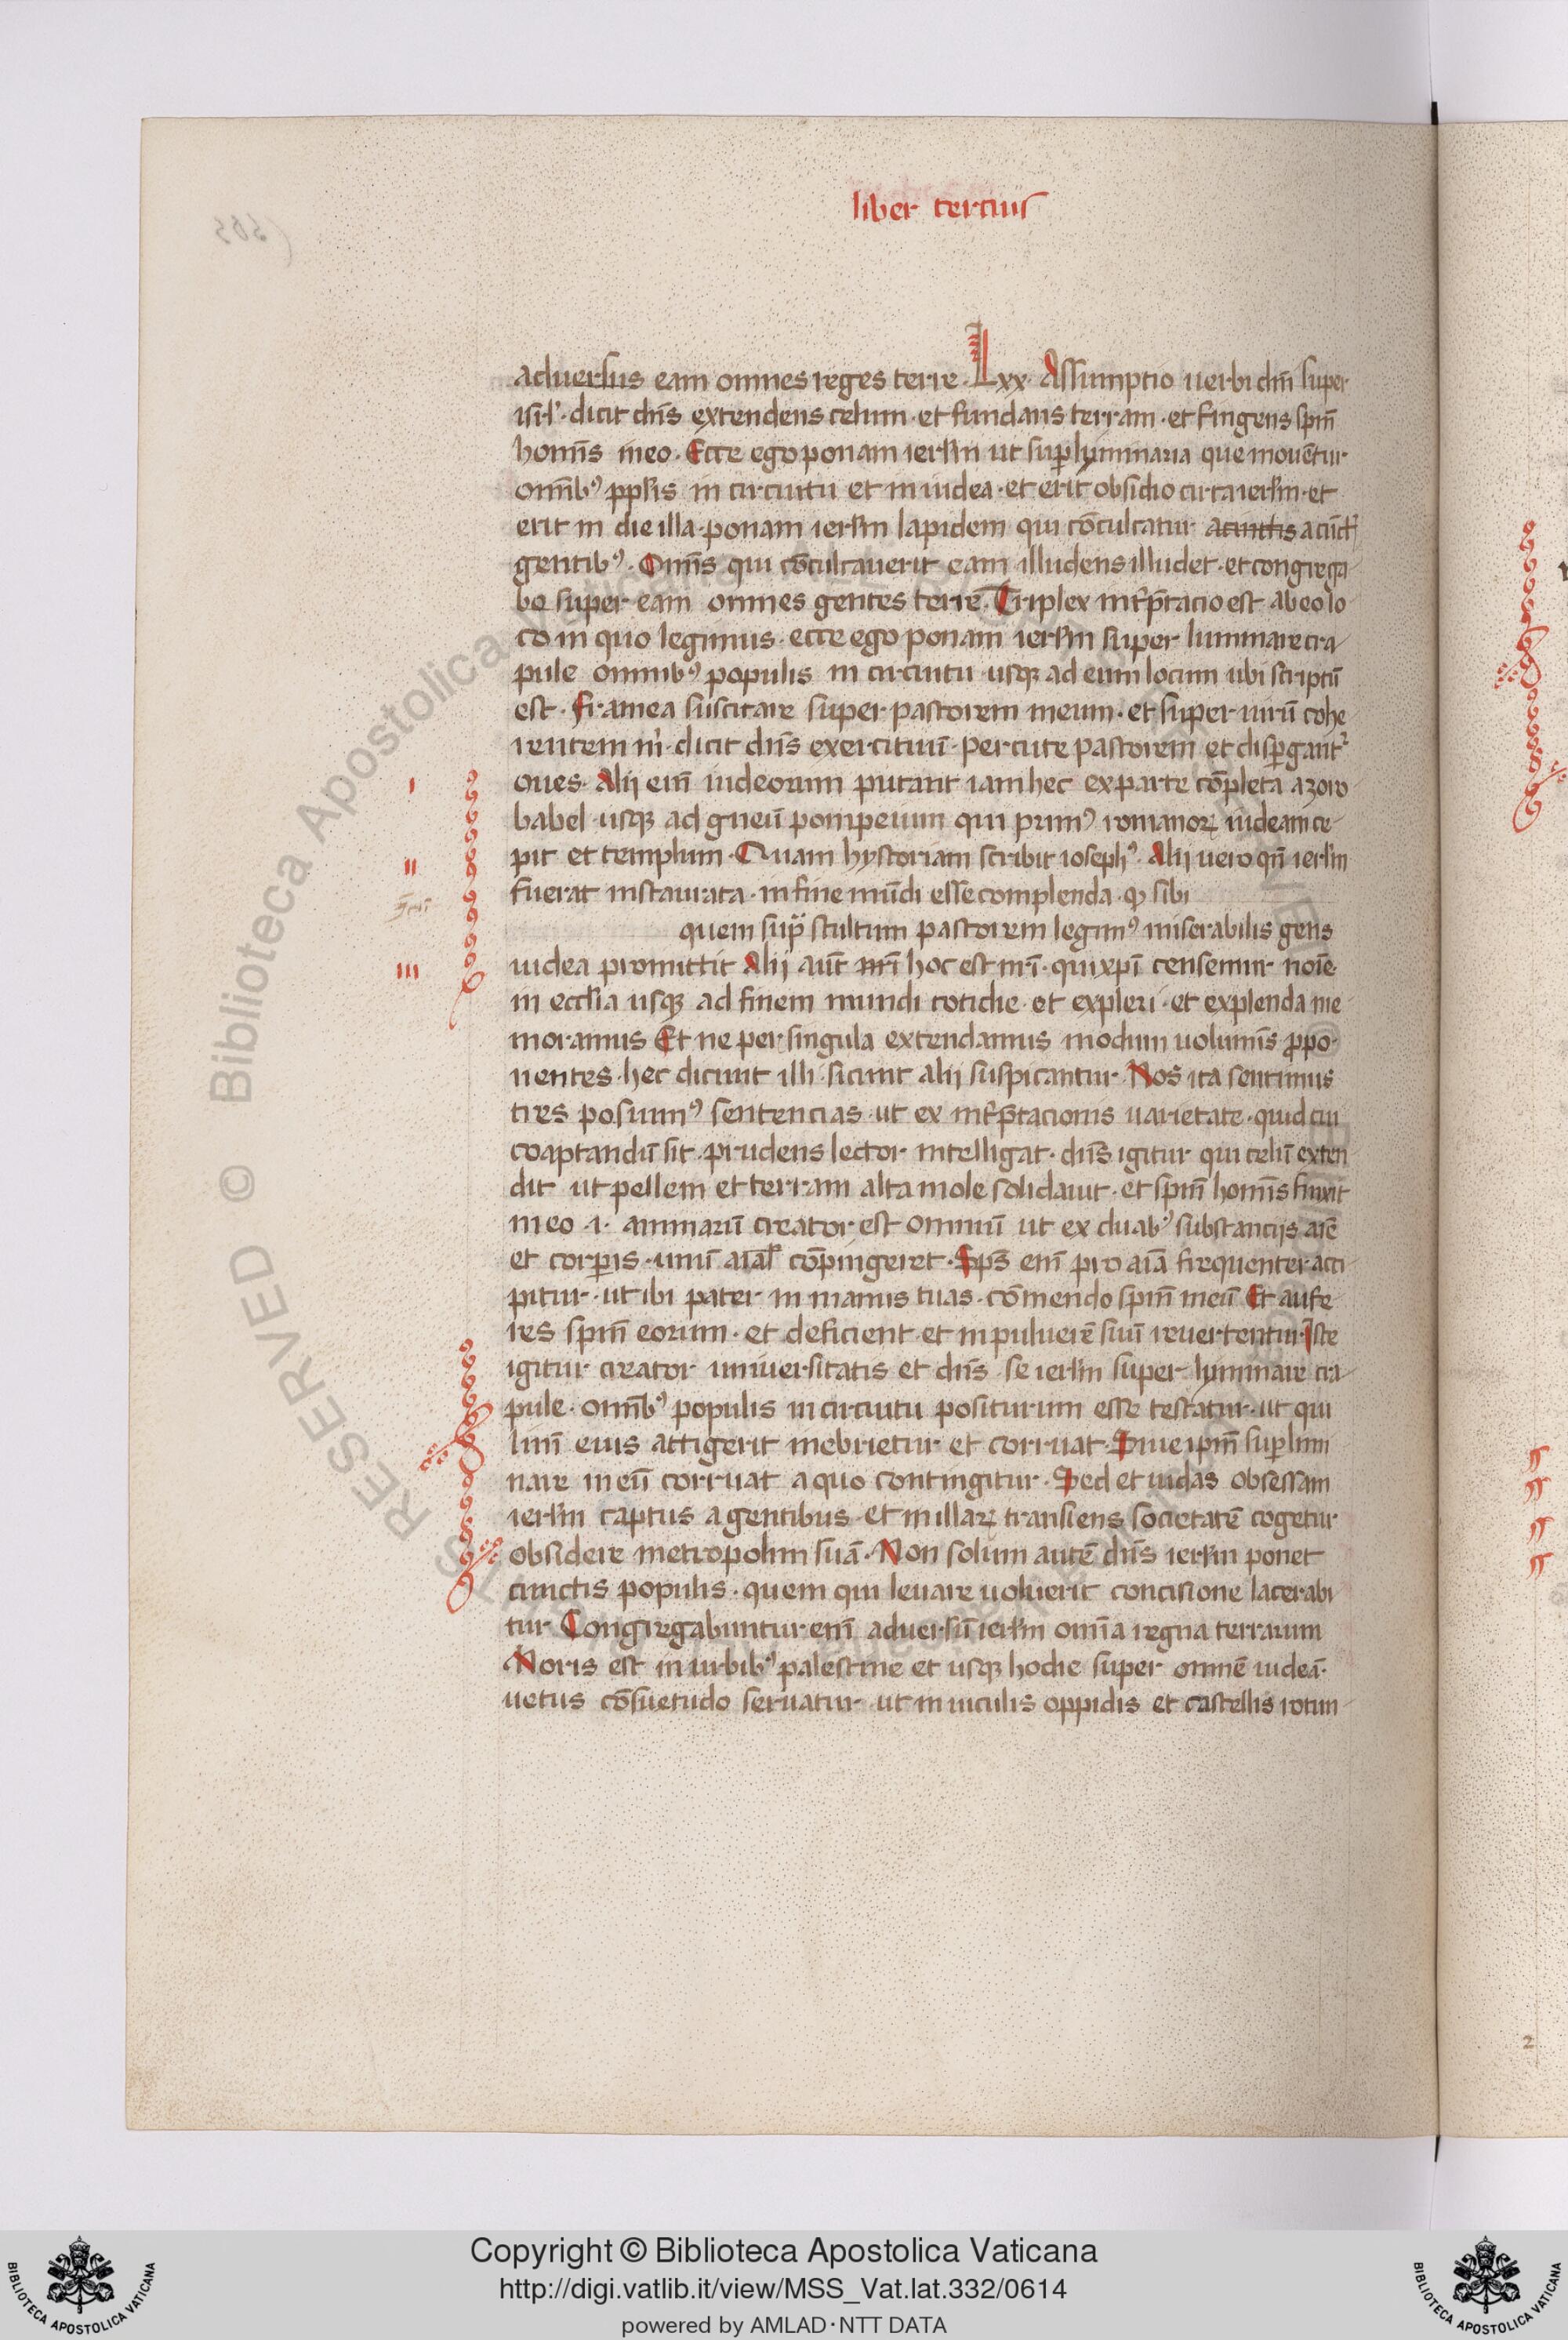 liber tercius
aduersus eam omnes reges terre. Lxx. Assumptio uerbi dm̄ super
isrl'. dicit dn̄s extendens celum. et fundans terram. et fingens spm̄
homīs in eo. Ecce ego ponam ierl̄m ut sup lyminaria que mouētur
omīb⁹ pplis in circuitu et in iudea. et erit obsidio circa ierl̄m. et
erit in die illa. ponam ierl̄m lapidem qui cōculcatur acunctis a cūct'
gentib⁹. Omīs qui cōculcauerit eam illudens illudet. et congrega
bo super eam omnes gentes terre. Triplex int̄p̄tacio est ab eo lo
co in quo legimus. ecce ego ponam ierl̄m super luminare cra
pule omnib⁹ populis in circuitu usqꝫ ad eum locum ubi scriptū
est. framea suscitare super pastorem meum. et super uirū cohe
rentem m'. dicit dn̄s exercituū. percute pastorem et dispergant'
oues. Alij em̄ iudeorum putant iam hec ex parte cōpleta a zoro
babel usqꝫ ad gneū pompeium qui prim⁹ romanoꝝ iudeam ce
pit et templum. Quam hystoriam scribit ioseph⁹. Alij uero qn̄ ierl̄m
fuerat instaurata. in fine mūdi esse complenda. ꝙ sibi
quem sup̄ stultum pastorem legim⁹ miserabilis gens
iudea promittit Alij aūt nr̄i hoc est nr̄i. qui xp̄i censemur noīe
in eccl̄ia usqꝫ ad finem mundi cotidie. et expleri. et explenda me
moramus Et ne per singula extendamus modum uolumīs ꝓpo
nentes. hec dicunt illi. sicunt alij suspicantur. Nos ita sentimus
tres posuim⁹ sentencias. ut ex int̄p̄tacionis uarietate. quid cui
coaptandū sit. prudens lector intelligat. dn̄s igitur qui celū exten
dit ut pellem et terram alta mole solidauit. et spm̄ homīs finxit
in eo .i. animarū creator est omniū ut ex duab⁹ substancijs aīe
et corꝑis. unū aīal' cōpingeret. Sps̄ em̄ pro aīa frequenter acci
pitur. ut ibi pater in manus tuas. cōmendo spm̄ meū Et aufe
res spm̄ eorum. et deficient et in puluerē suū reuertentur. Iste
igitur creator uniuersitatis et dn̄s. se ierl̄m super lyminare cra
pule. omīb⁹ populis in circuitu positurum esse testatur. ut qui
limī eius attigerit inebrietur et corruat. Siue ipm̄ suꝑlimi
nare in eū corruat a quo contingitur. Sed et iudas obsessam
ierl̄m captus a gentibus. et in illaꝝ transiens societatē cogetur
obsidere metropolim suā. Non solum autē dn̄s ierl̄m ponet
cunctis populis. quem qui leuare uoluerit concisione lacerabi
tur Congregabuntur em̄ aduersū ierl̄m omīa regna terrarum
Moris est in urbib⁹ palestine et usqꝫ hodie super omnē iudeā.
uetus cōsuetudo seruatur. ut in uiculis oppidis et castellis rotun
i
ii
iii
2
RESERVED © Biblioteca Apostolica Vaticana
Copyright © Biblioteca Apostolica Vaticana
http://digi.vatlib.it/view/MSS_Vat.lat.332/0614
powered by AMLAD·NTT DATA
BIBLIOTECA APOSTOLICA VATICANA
BIBLIOTECA APOSTOLICA VATICANA